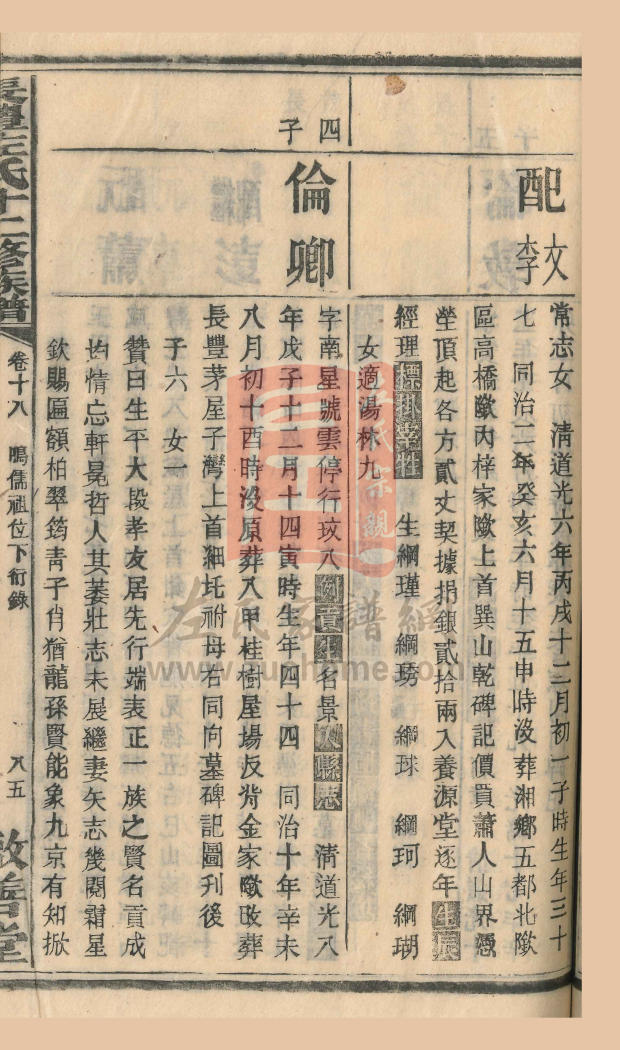 配
文
李
常志女 淸道光六年丙戌十二月初一子時生年三十
七 同治二年癸亥六月十五申時沒葬湘鄉五都北歐
區高橋歐內梓家歐上首巽山乾碑記價買蕭人山界憑
塋頂起各方貳丈契據捐銀貳拾兩入養源堂逐年生辰
經理標掛宰牲 生綱瑾 綱琇 綱球 綱珂 綱瑚
女適湯林九
四
子
倫卿
字南星號雲停行玟八例貢生名景入縣志 淸道光八
年戊子十二月十四寅時生年四十四 同治十年辛未
八月初十酉時沒原葬八甲桂樹屋場反背金家歐改葬
長豐茅屋子灣上首細圫祔母右同向墓碑記圖刋後
子六 女一
贊曰生平大段孝友居先行端表正一族之賢名貢成
均情忘軒冕哲人其萎壯志未展繼妻矢志幾閱霜星
欽賜匾額柏翠筠靑子肖猶龍孫賢能象九京有知掀
左氏十二修族譜
卷十八
鳴儒祖位下衍錄
八五
敦善堂
左氏家譜網